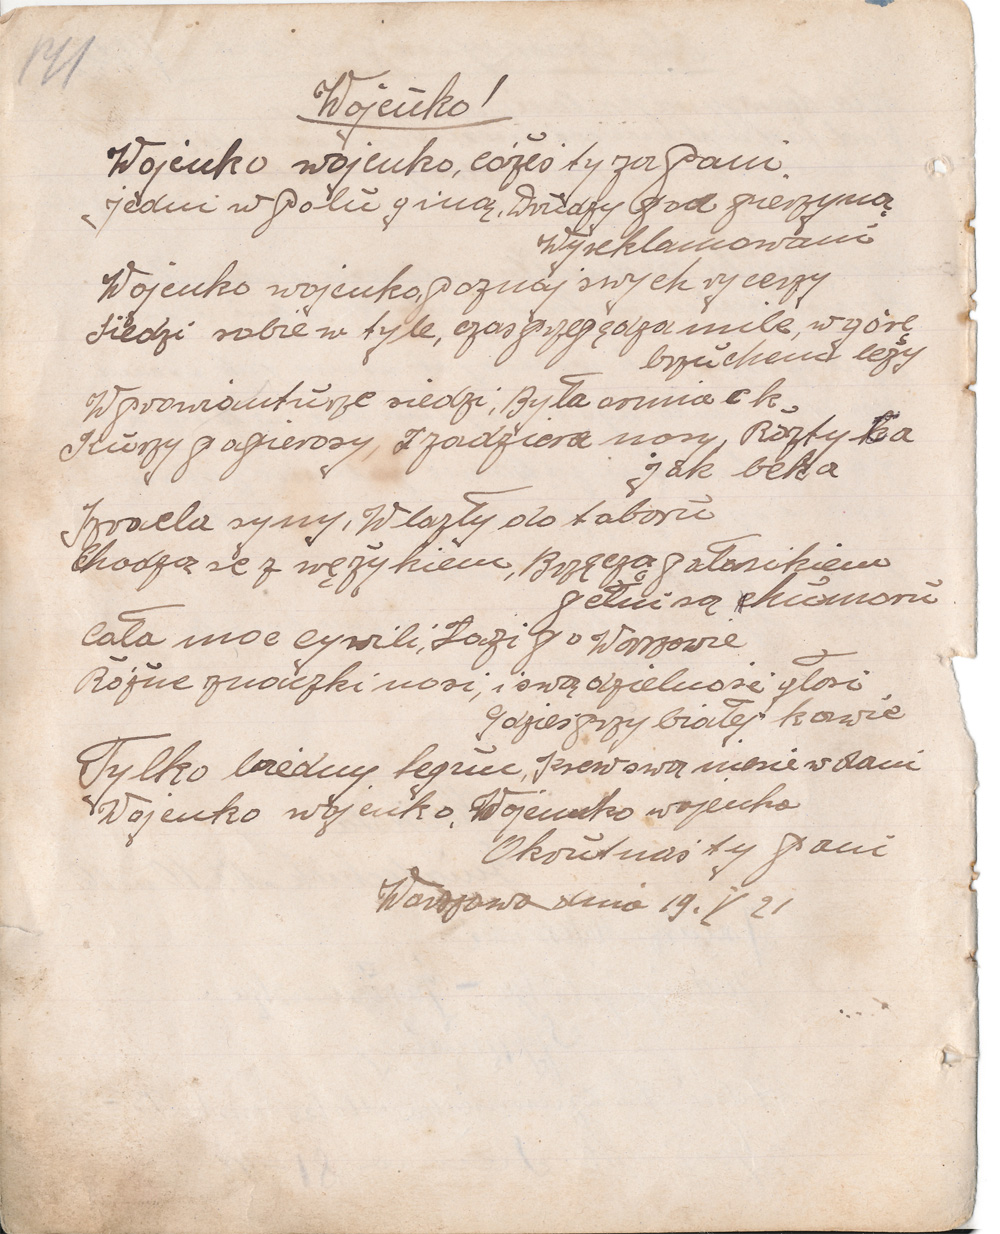 141
Wojenko!
Wojenko wojenko, cóżeś ty za pani
jedni w polu giną, Drudzy pod pierzyną
Wyreklamowani
Wojenko wojenko, poznaj swych rycerzy
Siedzi sobie w tyle, czas przepędza mile, w górę
brzuchem leży
W prowianturze siedzi, Była armia c k
Kurzy papierosy, I zadziera nosy, Roztyła
jak beka
Izraela syny, Wlazły do taboru
Chodzą se z wężykiem, Brzęczą pałasikiem
pełni są chumoru
Cała moc cywili, Łazi po Warszawie
Różne znaczki nosi, i swą dzielność głosi
gdzieś przy białej kawie
Tylko biedny legun, Krew swą niesie w dani
Wojenko wojenko, Wojenko wojenko
Okrutnaś ty pani
Warszawa dnia 19. V 21